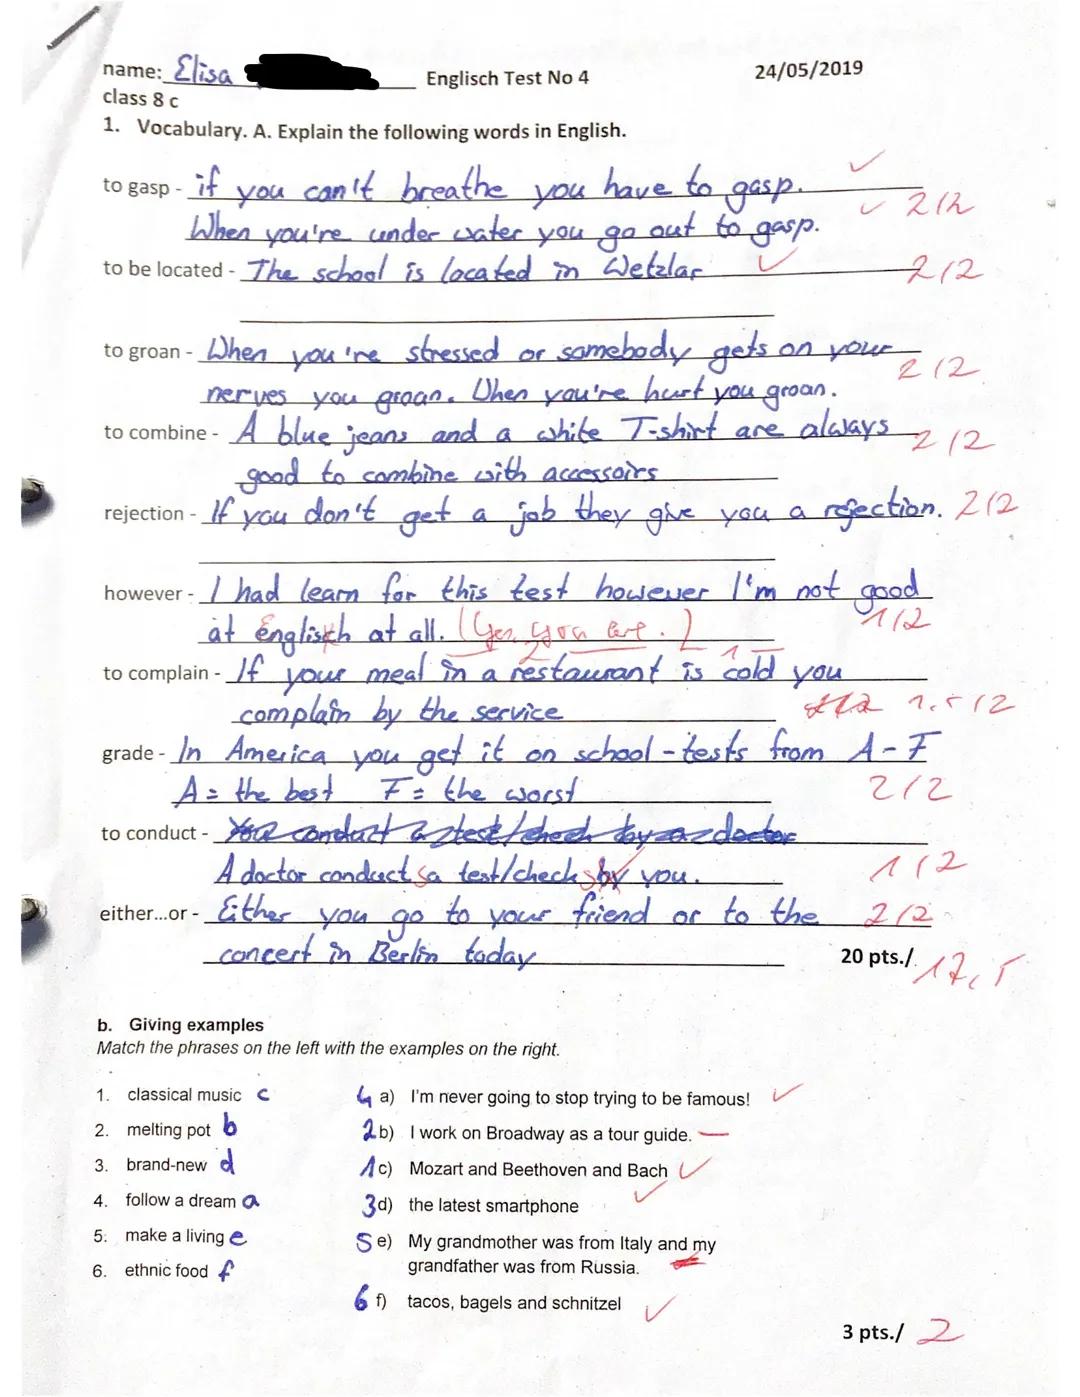 name: Elisa Englisch Test No 4 24/05/2019
class 8 c
1. Vocabulary. A. Explain the following words in English.
to gasp - if you can't breathe you have to gasp.
When you're under water you go out to gasp. 2/2
to be located - The school is located in Wetzlar 2/2
to groan - When you're stressed or somebody gets on your
nerves you groan. When you're hurt you groan. 2/2
to combine - A blue jeans and a white T-shirt are always 2/2
good to combine with accessoirs
rejection - If you don't get a job they give you a rejection. 2/2
however - I had learn for this test however I'm not good
at englisch at all. (Yes, you are.) 1/2
to complain - If your meal in a restaurant is cold you
complain by the service 1.5/2
grade - In America you get it on school-tests from A-F
A = the best F = the worst 2/2
to conduct - You conduct a test/check by a doctor
A doctor conduct s a test/check by you. 1/2
either...or - Either you go to your friend or to the 2/2
concert in Berlin today
20 pts./ 17,5
b. Giving examples
Match the phrases on the left with the examples on the right.
1. classical music c 4 a) I'm never going to stop trying to be famous!
2. melting pot b 2 b) I work on Broadway as a tour guide.
3. brand-new d 1 c) Mozart and Beethoven and Bach
4. follow a dream a 3 d) the latest smartphone
5. make a living e 5 e) My grandmother was from Italy and my
grandfather was from Russia.
6. ethnic food f 6 f) tacos, bagels and schnitzel
3 pts./ 2